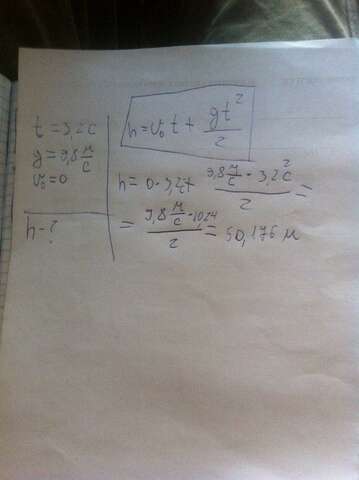 t = 3,2 с
g = 9,8 м/с
v₀ = 0
h - ?
h = v₀ t + gt²/2
h = 0 · 3,2 + 9,8 м/с · 3,2 с²/2 =
= 9,8 м/с · 10,24/2 = 50,176 м